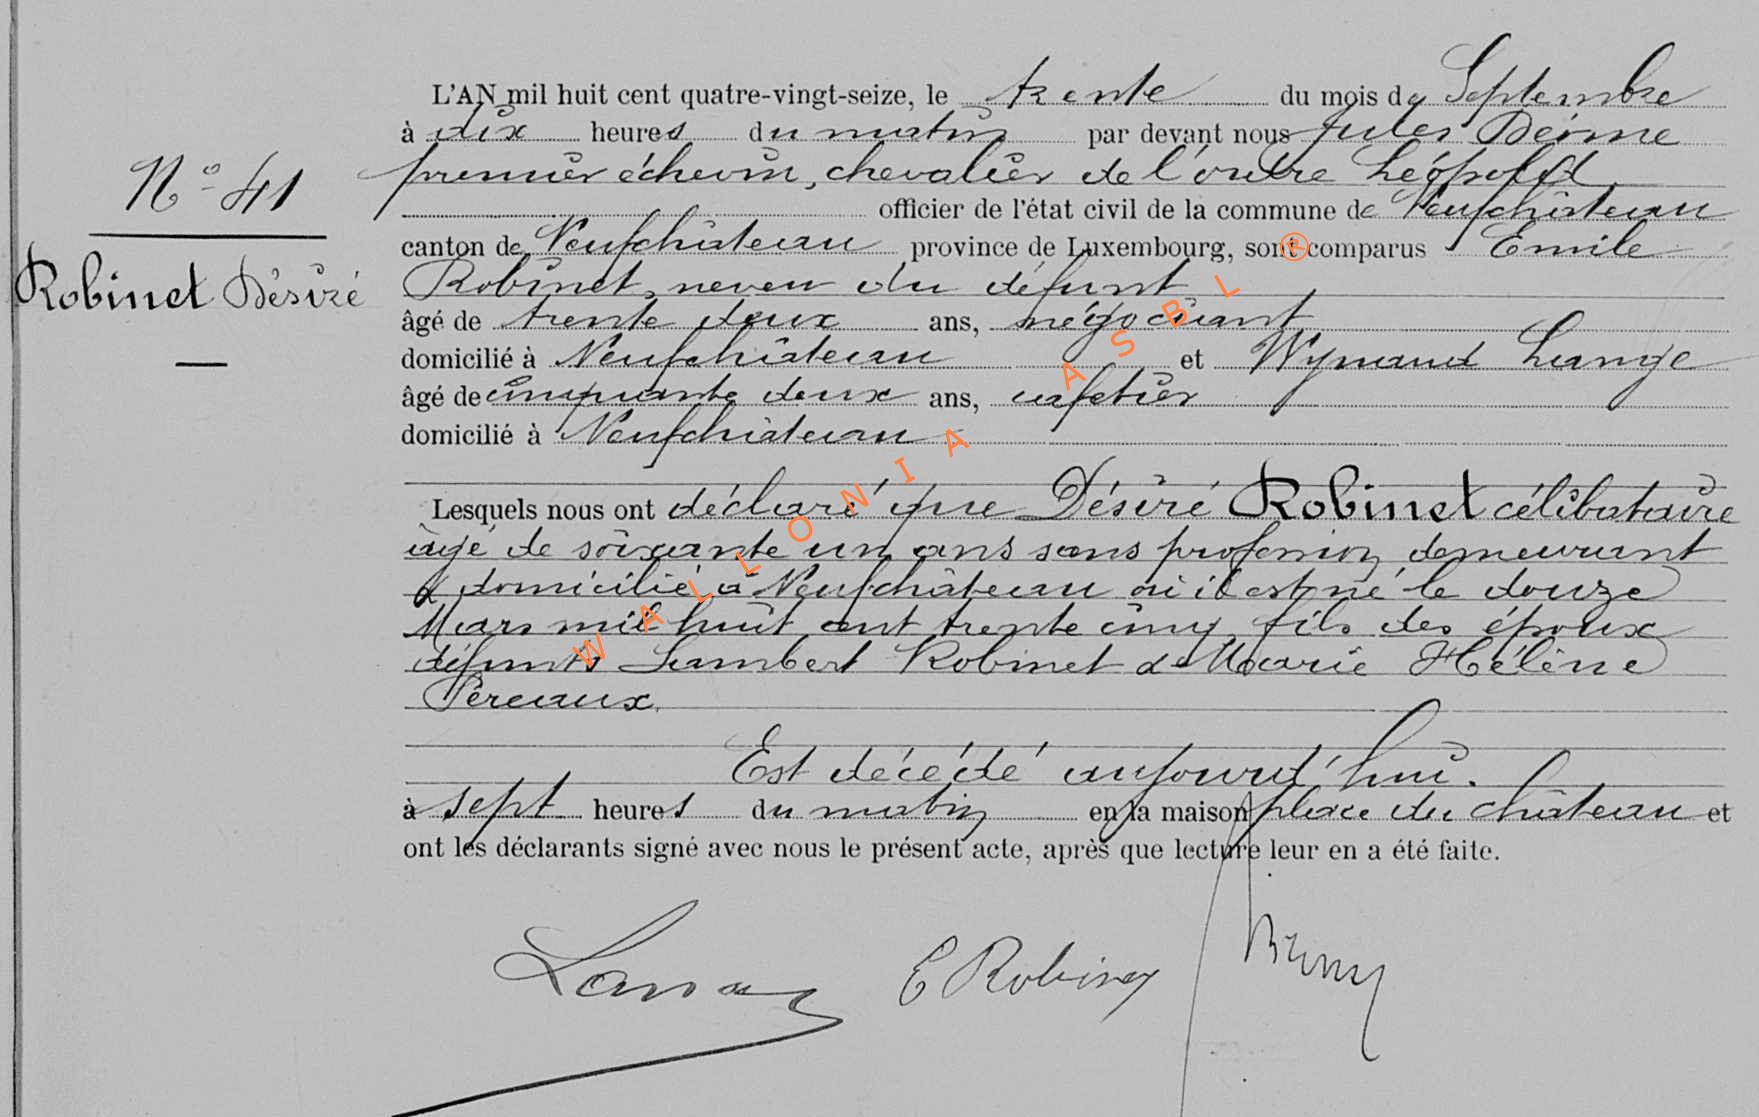 L'AN mil huit cent quatre-vingt-seize, le trente du mois de Septembre
à dix heures du matin par devant nous Jules
N° 41
premier échevin, chevalier de l'ordre Léopold
officier de l'état civil de la commune de Neufchâteau
canton de Neufchâteau province de Luxembourg, sont comparus Emile
Robinet Désiré
Robinet, neveu du défunt
âgé de trente deux ans, négociant
domicilié à Neufchâteau et Wynand Lange
âgé de cinquante deux ans, cafetier
domicilié à Neufchâteau
Lesquels nous ont déclaré que Désiré Robinet célibataire
âgé de soixante un ans sans profession demeurant
& domicilié à Neufchâteau où il est né le douze
Mars mil huit cent trente cinq, fils des époux
défunts Lambert Robinet & Marie Hélène
Péreaux.
Est décédé aujourd'hui.
à sept heures du matin en la maison place du château et
ont les déclarants signé avec nous le présent acte, après que lecture leur en a été faite.
E Robinet
WALLONIA ASBL ®